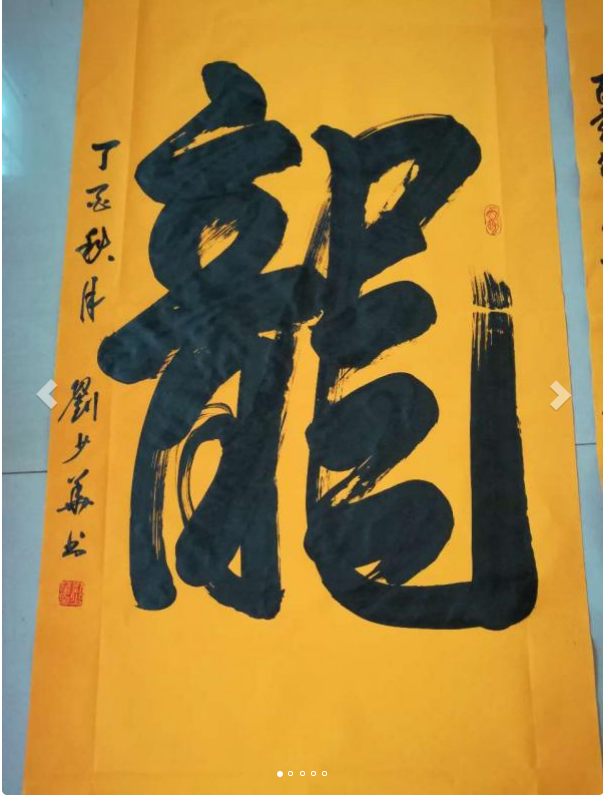 龍
丁酉秋月 劉少華书